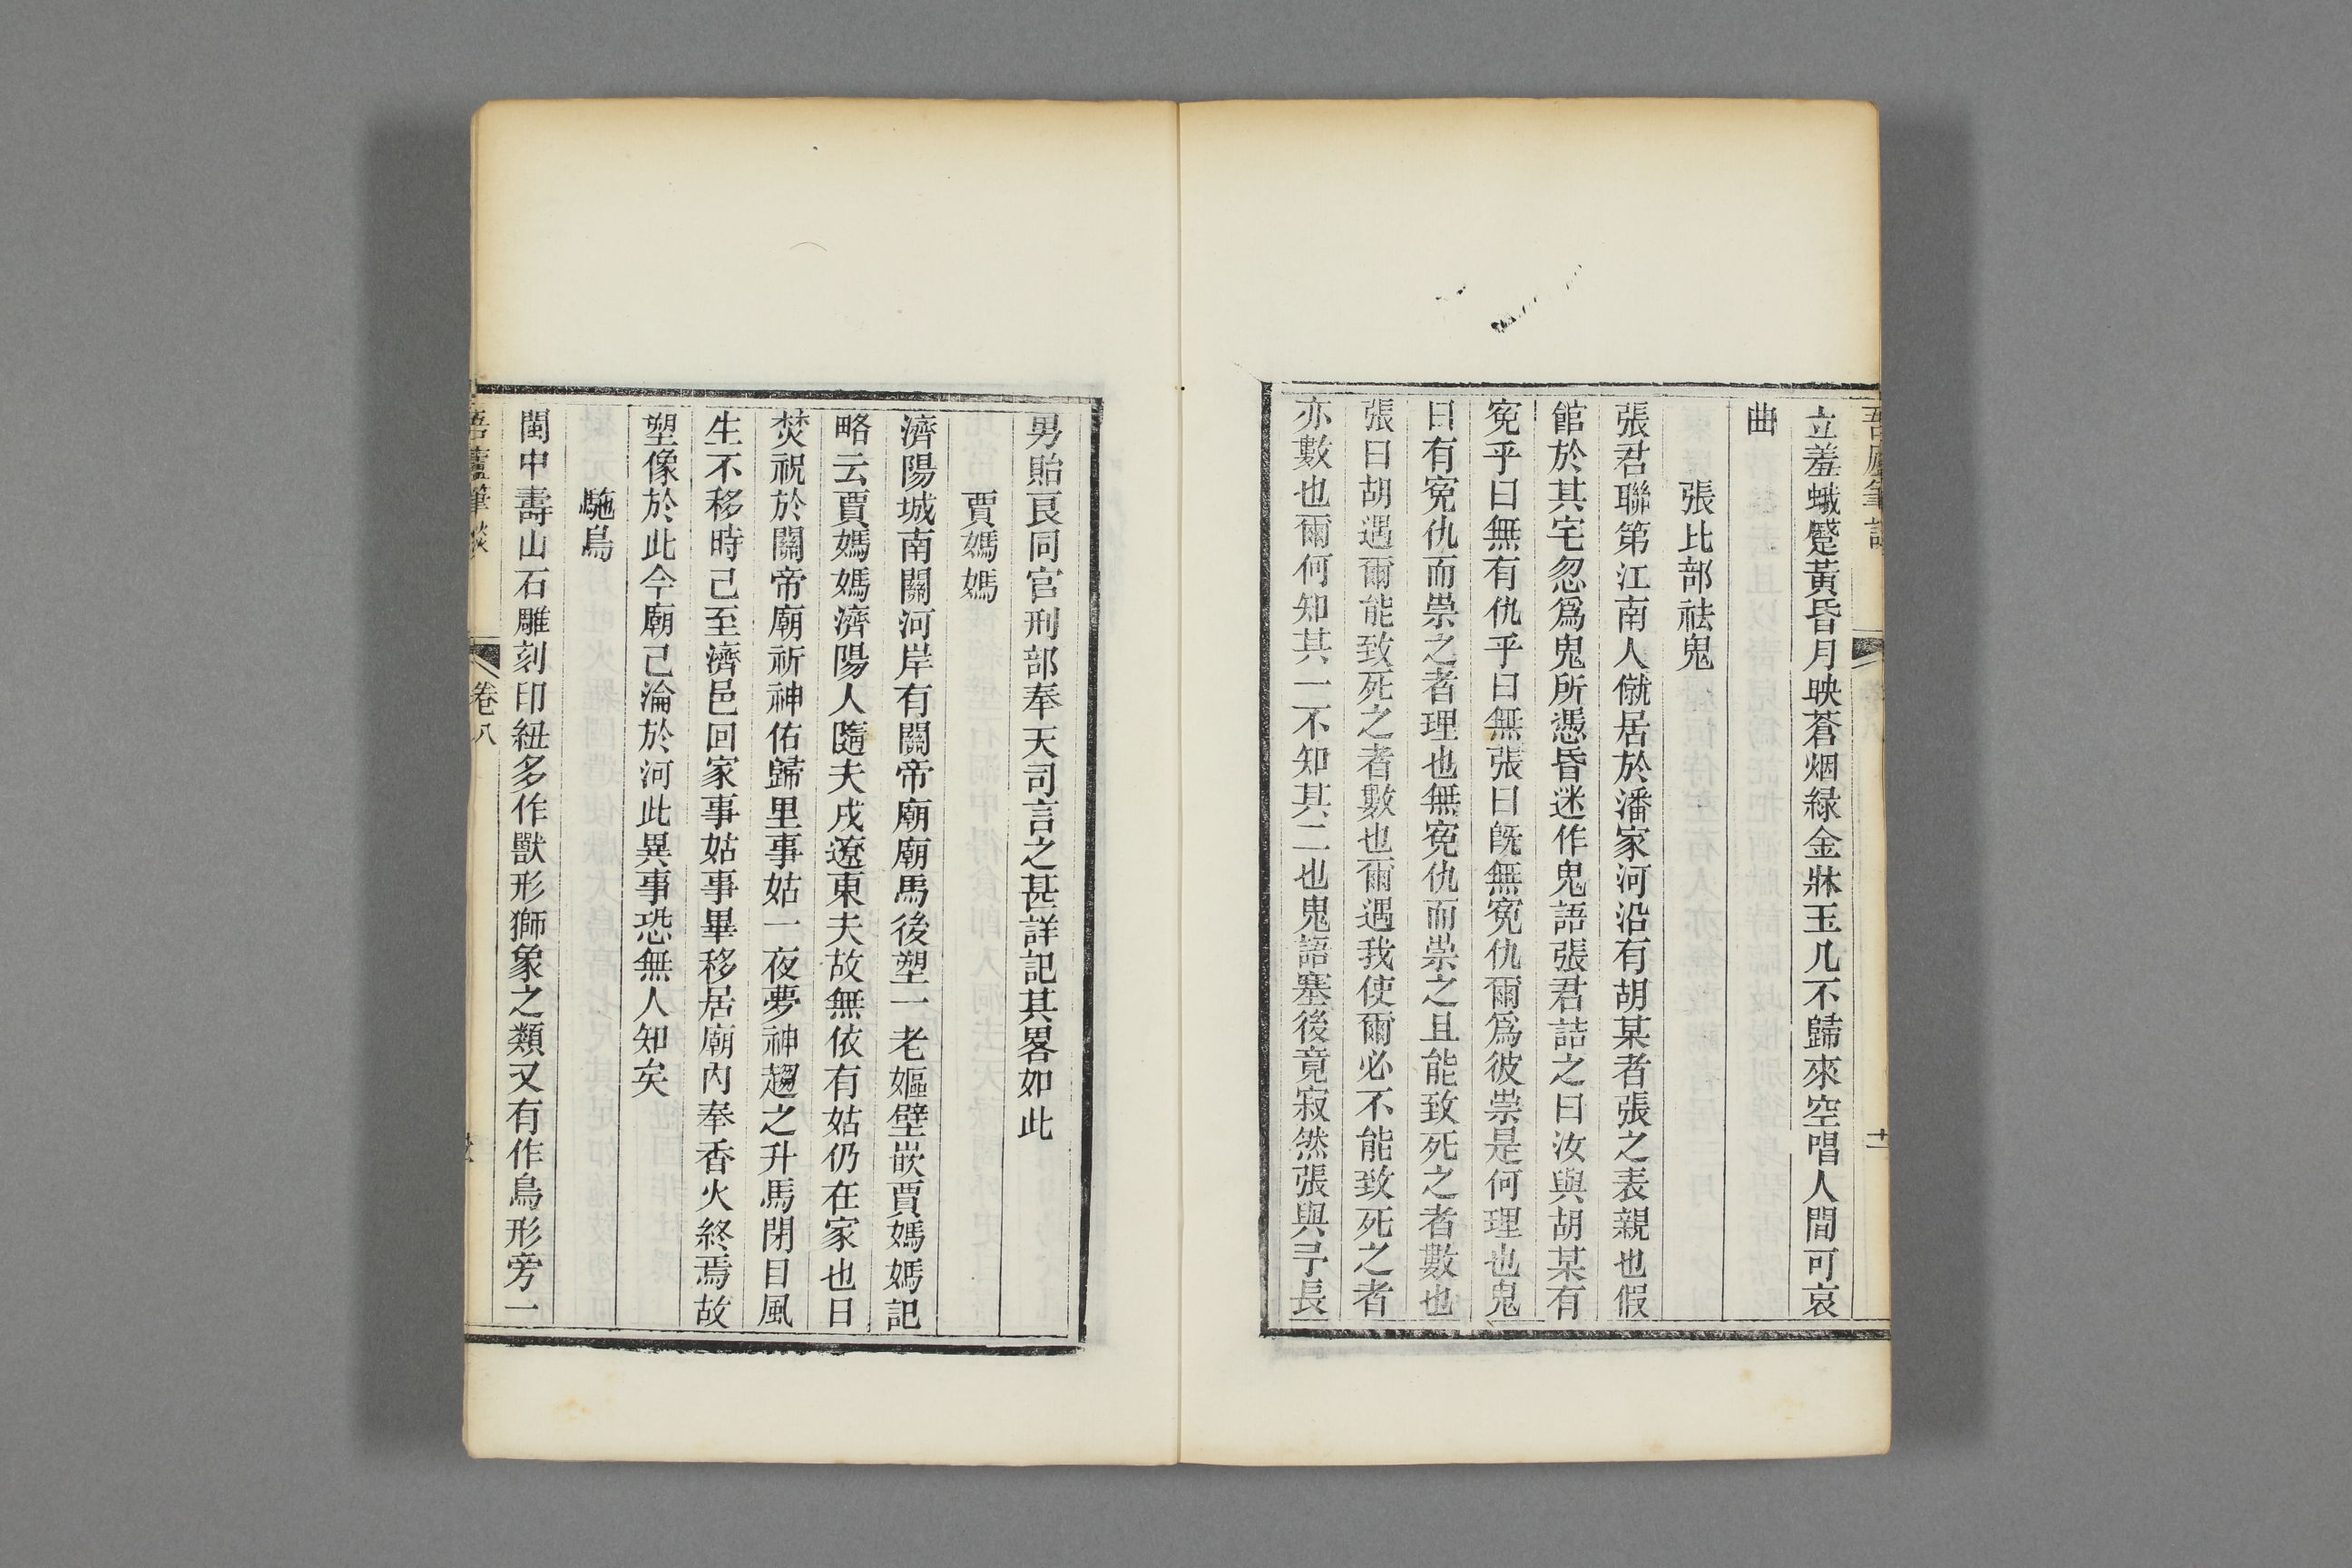 立羞蛾蹙黃昏月映蒼烟緑金牀玉几不歸來空唱人間可哀
曲
張比部祛鬼
張君聯第江南人僦居於潘家河沿有胡某者張之表親也假
館於其宅忽爲鬼所憑昏迷作鬼語張君詰之曰汝與胡某有
寃乎曰無有仇乎曰無張曰旣無寃仇爾爲彼祟是何理也鬼
曰有寃仇而祟之者理也無寃仇而祟之且能致死之者數也
張曰胡遇爾能致死之者數也爾遇我使爾必不能致死之者
亦數也爾何知其一不知其二也鬼語塞後竟寂然張與予長
男貽良同官刑部奉天司言之甚詳記其畧如此
賈媽媽
濟陽城南關河岸有關帝廟廟馬後塑一老嫗壁嵌賈媽媽記
略云賈媽媽濟陽人隨夫戍遼東夫故無依有姑仍在家也日
焚祝於關帝廟祈神佑歸里事姑一夜夢神趨之升馬閉目風
生不移時己至濟邑回家事姑事畢移居廟內奉香火終焉故
塑像於此今廟己淪於河此異事恐無人知矣
駞鳥
閩中壽山石雕刻印紐多作獸形獅象之類又有作鳥形旁一
卷八